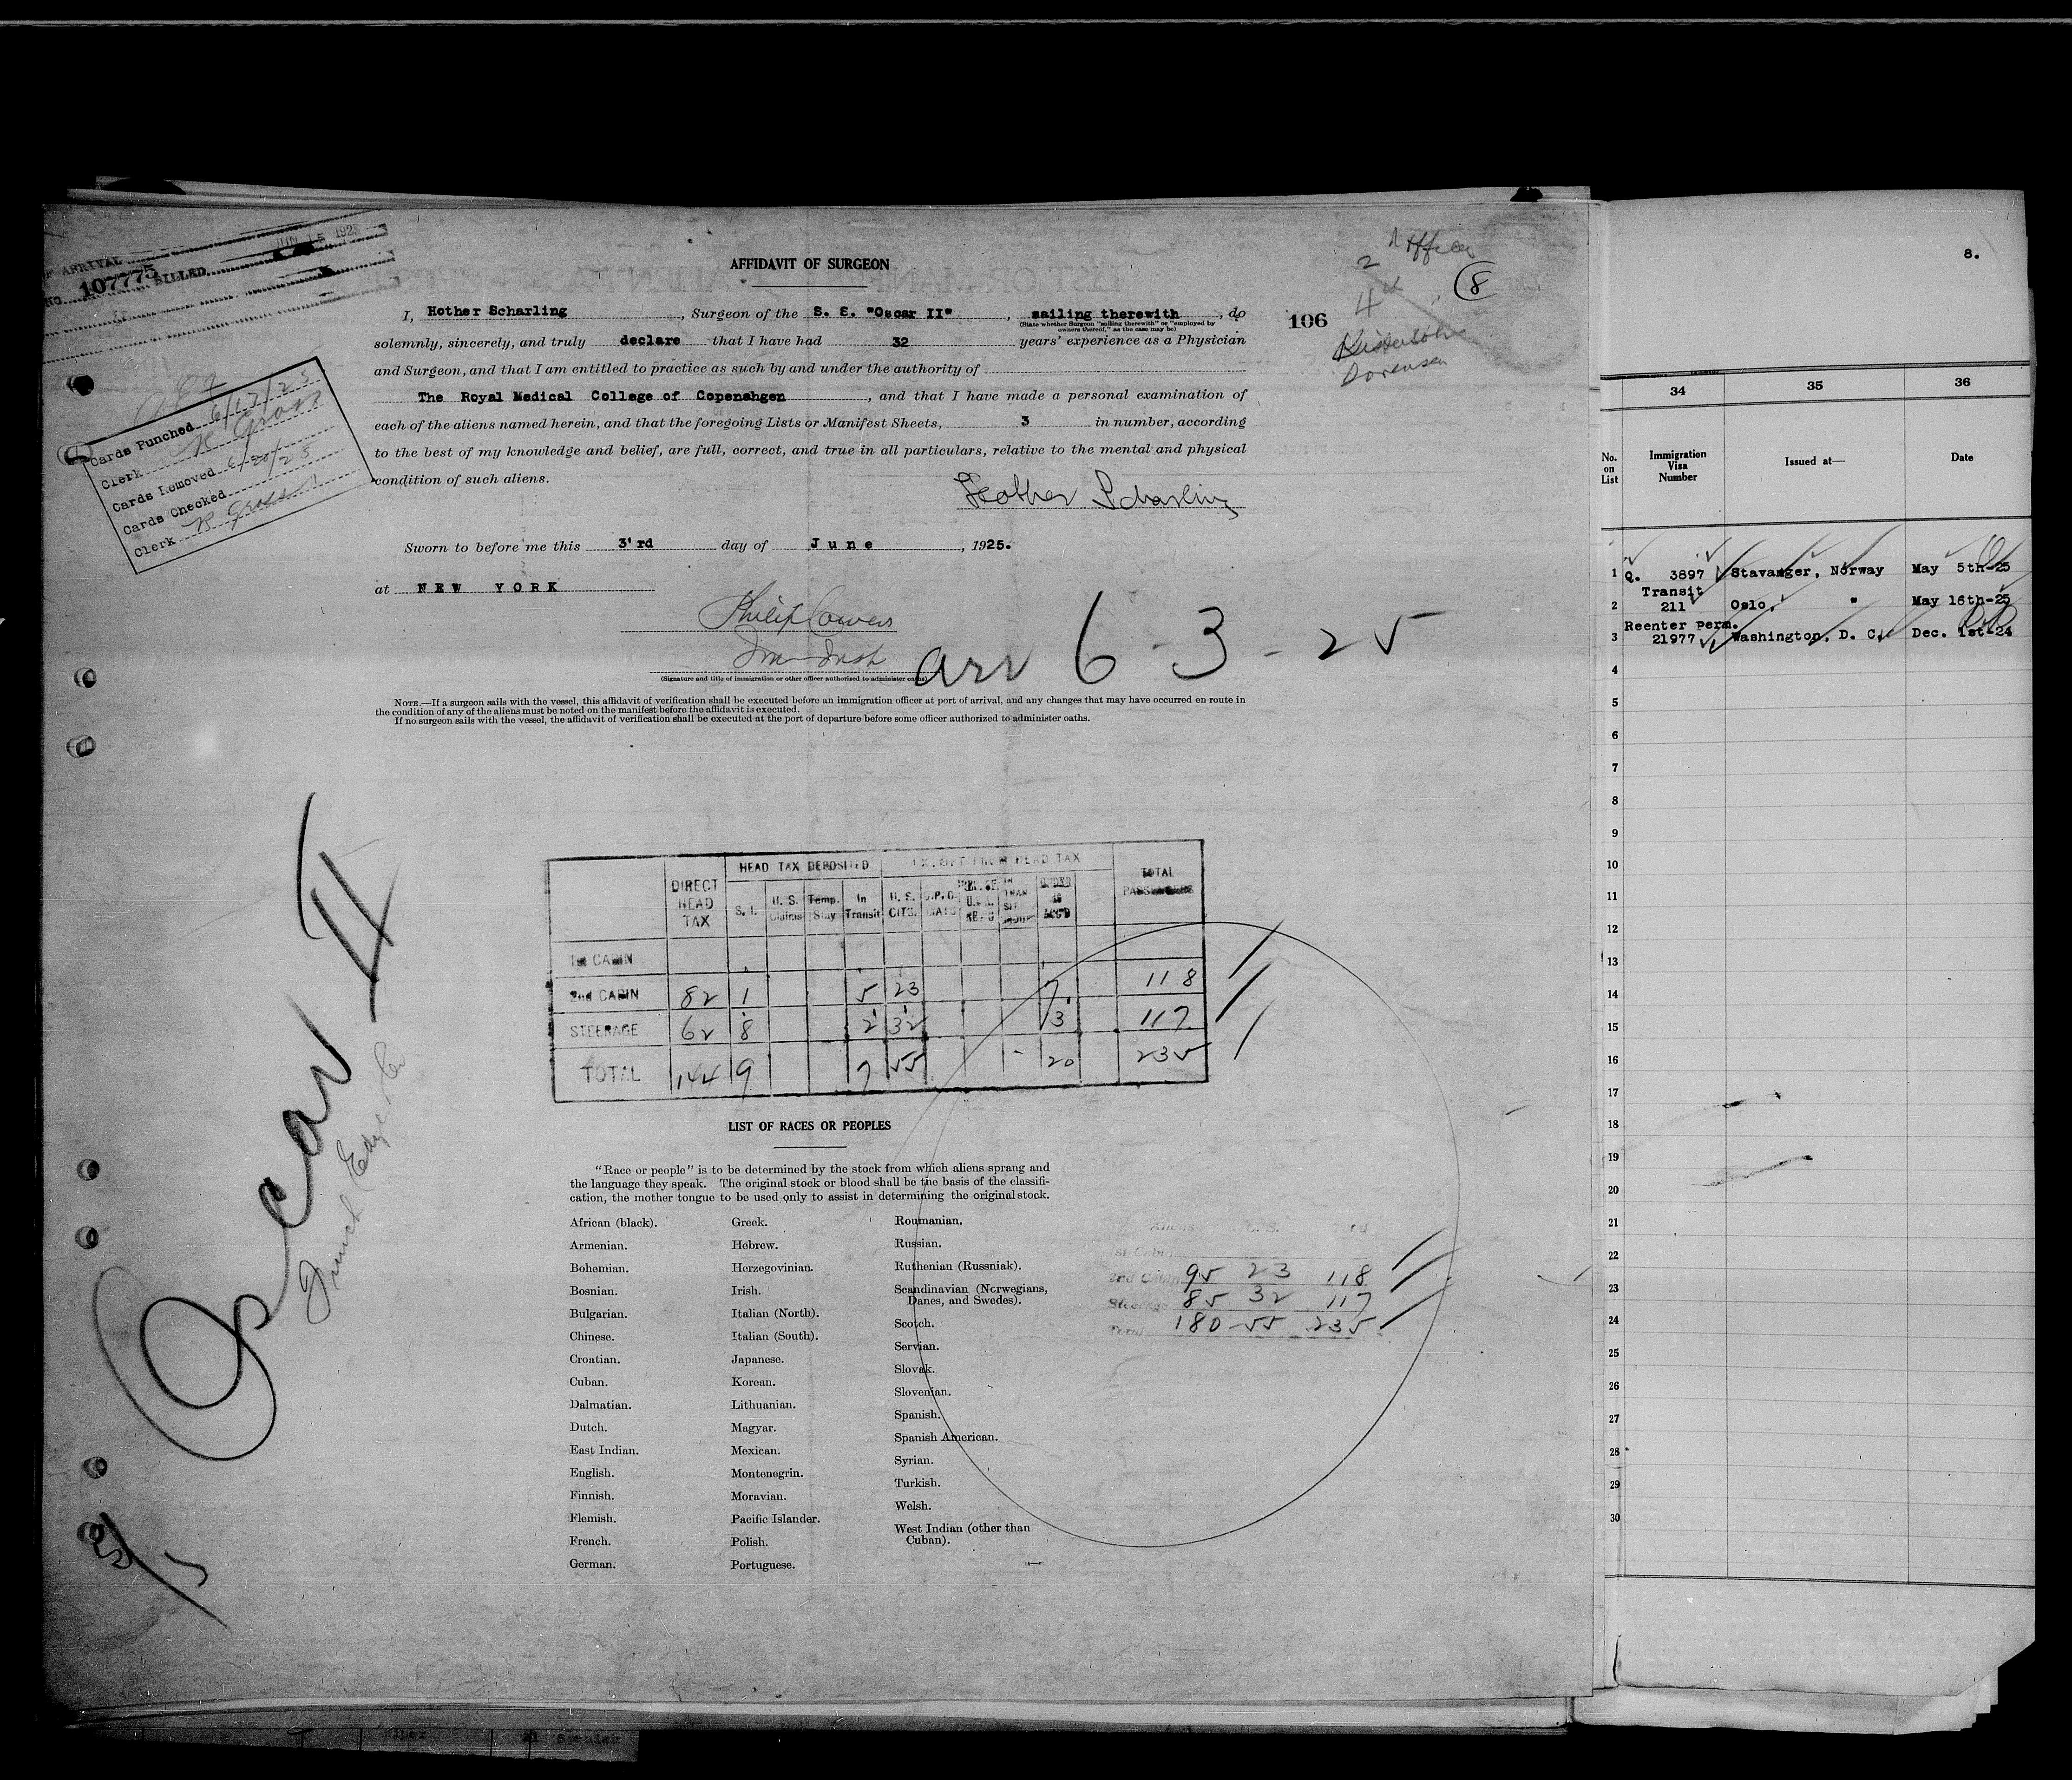 JUN 15 192
OF ARRIVAL
NO. 107775 BILLED
Cards Punched 6/17/25
Clerk R Gross
Cards Removed 6/20/25
Cards Checked
Clerk R Gross
2d Officer
4th "
8
106
AFFIDAVIT OF SURGEON
I, Hother Scharling, Surgeon of the S. S. "Oscar II", sailing therewith, do
(State whether Surgeon "sailing therewith" or "employed by
owners thereof," as the case may be)
solemnly, sincerely, and truly declare that I have had 32 years' experience as a Physician
and Surgeon, and that I am entitled to practice as such by and under the authority of
The Royal Medical College of Copenahgen, and that I have made a personal examination of
each of the aliens named herein, and that the foregoing Lists or Manifest Sheets, 3 in number, according
to the best of my knowledge and belief, are full, correct, and true in all particulars, relative to the mental and physical
condition of such aliens.
Hother Scharling
Sworn to before me this 3'rd day of June, 1925.
at NEW YORK
Philip Cowen
arr 6-3-25
(Signature and title of immigration or other officer authorized to administer oaths)
NOTE.—If a surgeon sails with the vessel, this affidavit of verification shall be executed before an immigration officer at port of arrival, and any changes that may have occurred en route in
the condition of any of the aliens must be noted on the manifest before the affidavit is executed.
If no surgeon sails with the vessel, the affidavit of verification shall be executed at the port of departure before some officer authorized to administer oaths.
Oscar II
DIRECT HEAD TAX
HEAD TAX DEPOSITED
EXEMPT FROM HEAD TAX
TOTAL PASSENGERS
S. I. U. S. Claims Temp. Stay In Transit U. S. CITS.
1st CABIN
2nd CABIN 82 1 5 23 7 118
STEERAGE 62 8 2 32 13 117
TOTAL 144 9 7 55 20 235
LIST OF RACES OR PEOPLES
"Race or people" is to be determined by the stock from which aliens sprang and
the language they speak. The original stock or blood shall be the basis of the classifi-
cation, the mother tongue to be used only to assist in determining the original stock.
African (black).
Armenian.
Bohemian.
Bosnian.
Bulgarian.
Chinese.
Croatian.
Cuban.
Dalmatian.
Dutch.
East Indian.
English.
Finnish.
Flemish.
French.
German.
Greek.
Hebrew.
Herzegovinian.
Irish.
Italian (North).
Italian (South).
Japanese.
Korean.
Lithuanian.
Magyar.
Mexican.
Montenegrin.
Moravian.
Pacific Islander.
Polish.
Portuguese.
Roumanian.
Russian.
Ruthenian (Russniak).
Scandinavian (Norwegians,
Danes, and Swedes).
Scotch.
Servian.
Slovak.
Slovenian.
Spanish.
Spanish American.
Syrian.
Turkish.
Welsh.
West Indian (other than
Cuban).
Aliens U. S. Total
1st Cabin
2nd Cabin 95 23 118
Steerage 85 32 117
Total 180 55 235
8.
34 35 36
No. on List
Immigration Visa Number
Issued at—
Date
1 Q. 3897 Stavanger, Norway May 5th-25
Transit
2 211 Oslo, " May 16th-25
Reenter perm.
3 21977 Washington, D. C. Dec. 1st-24
4
5
6
7
8
9
10
11
12
13
14
15
16
17
18
19
20
21
22
23
24
25
26
27
28
29
30
Spanish